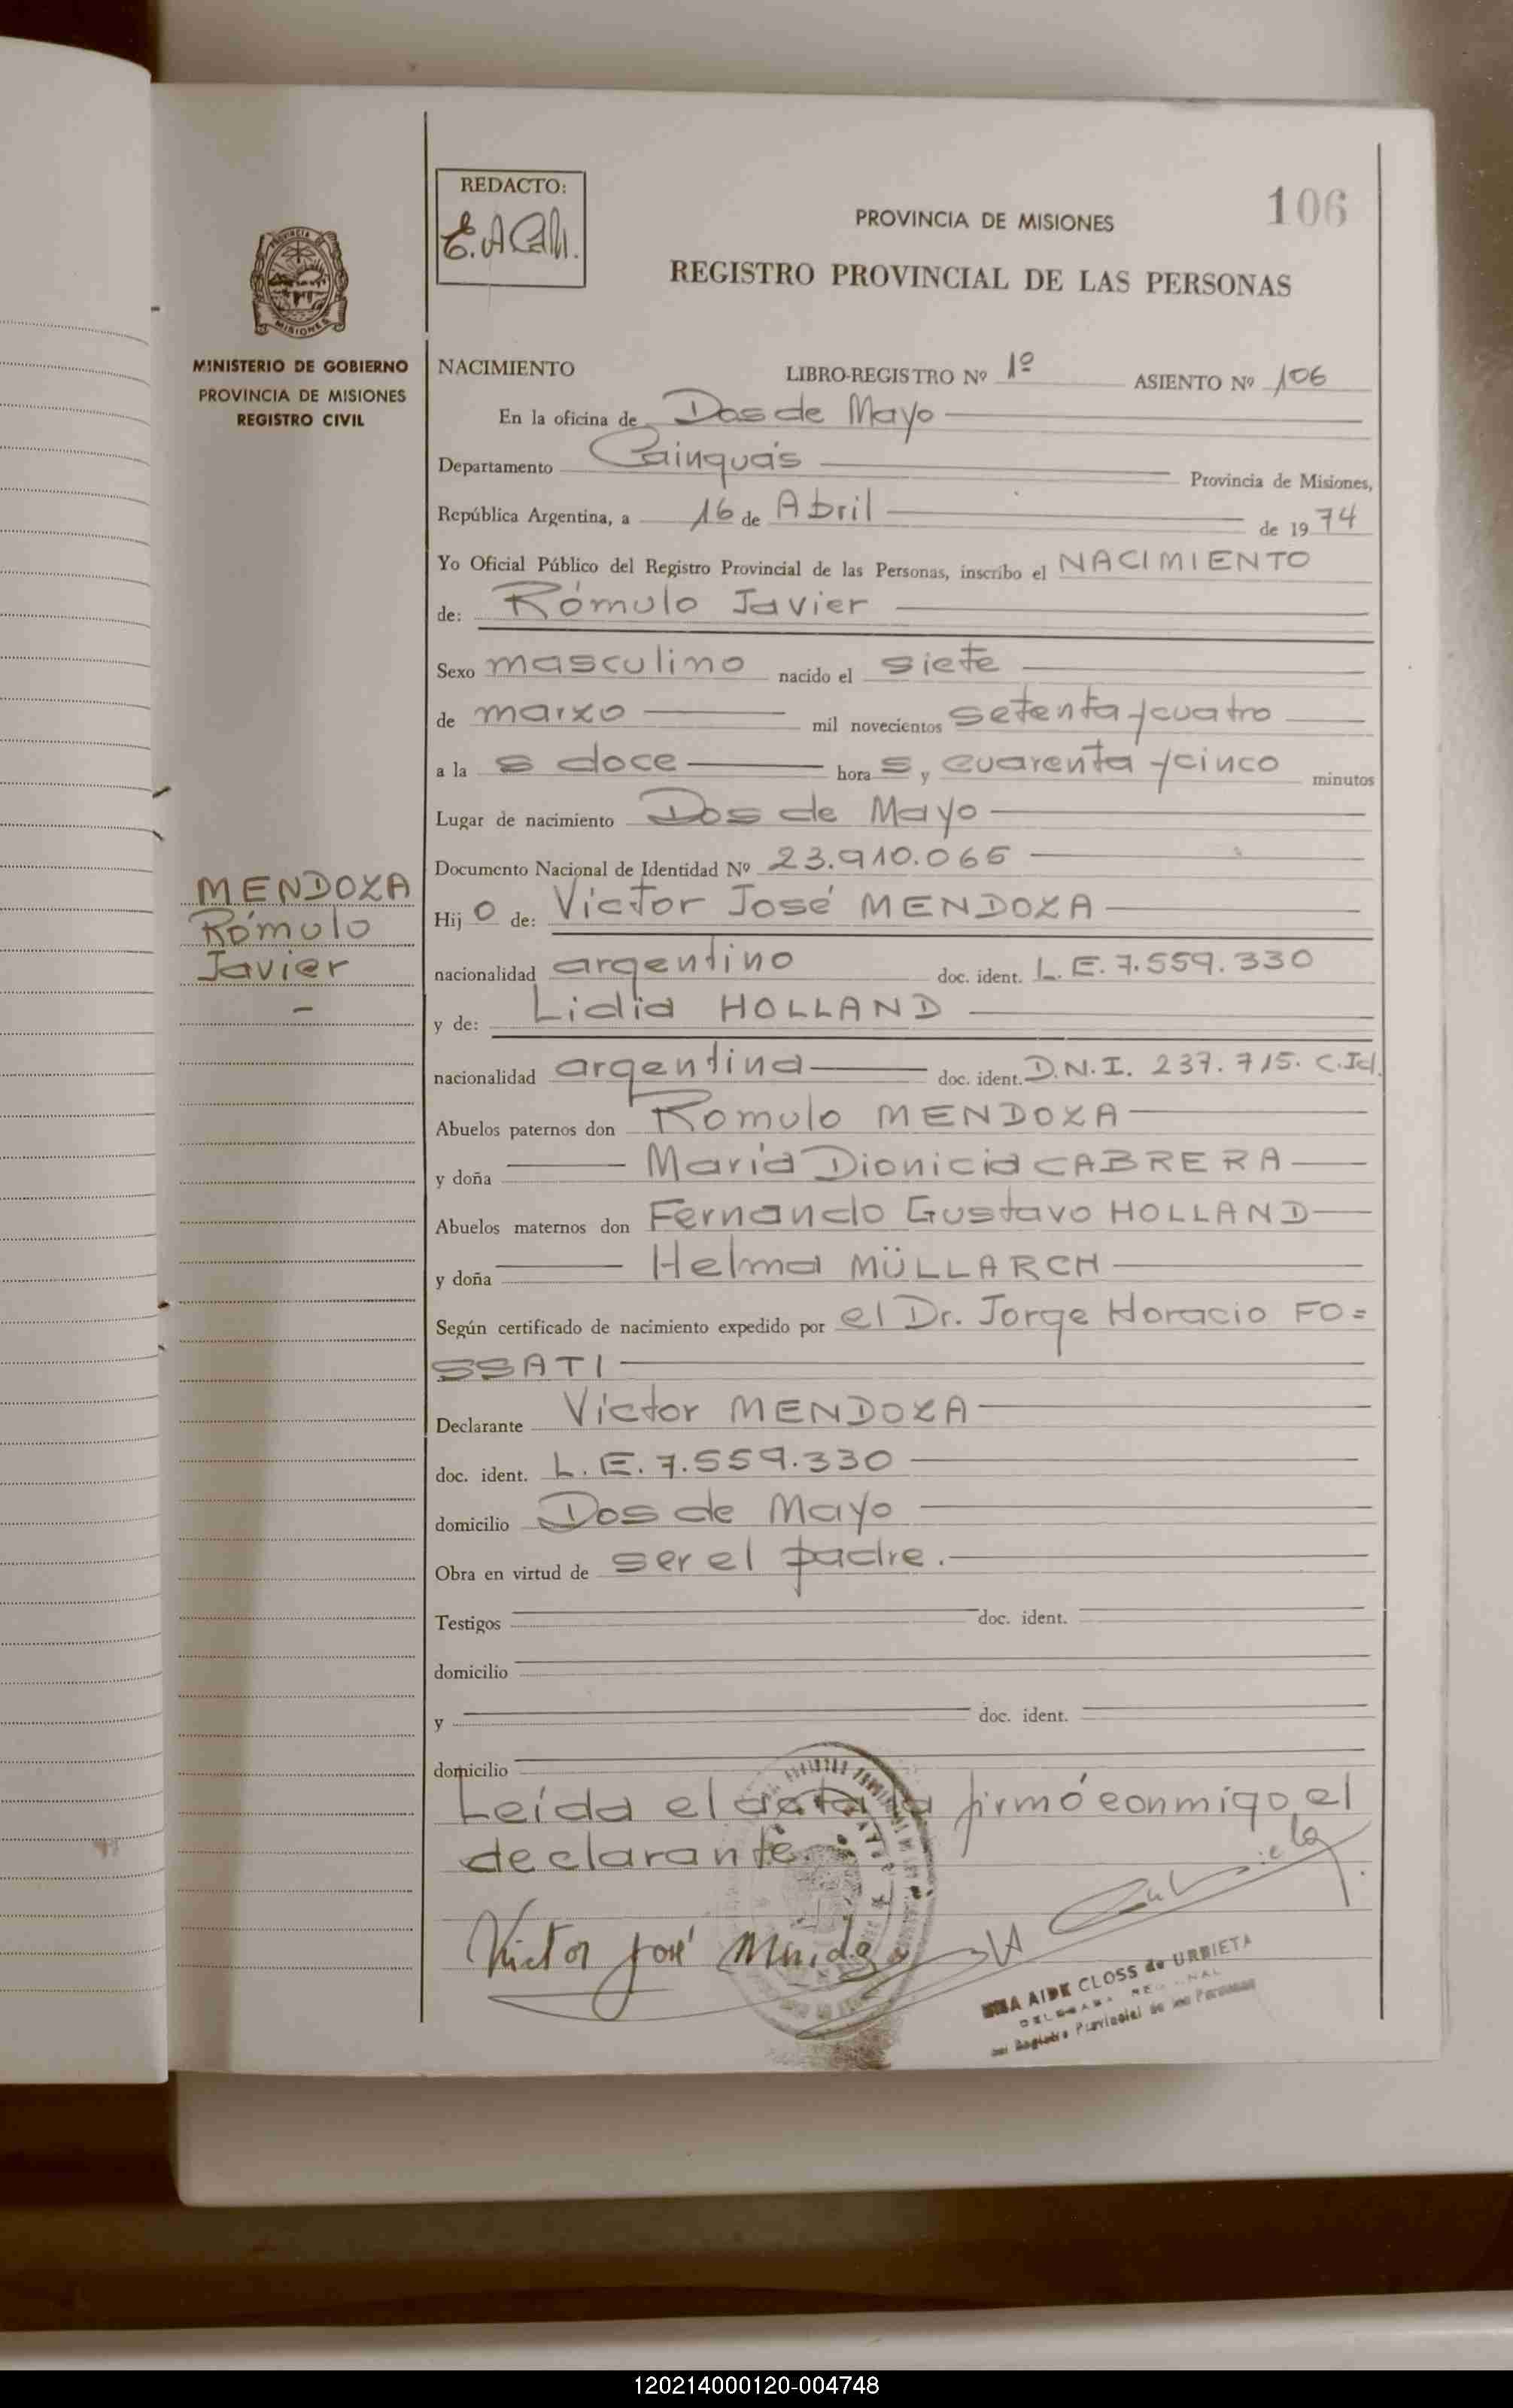 106
REDACTO:
PROVINCIA DE MISIONES
REGISTRO PROVINCIAL DE LAS PERSONAS
MISIONES
MINISTERIO DE GOBIERNO
PROVINCIA DE MISIONES
REGISTRO CIVIL
NACIMIENTO LIBRO-REGISTRO Nº 1º ASIENTO Nº 106
En la oficina de Dos de Mayo
Departamento Cainguás Provincia de Misiones,
República Argentina, a 16 de Abril de 1974
Yo Oficial Público del Registro Provincial de las Personas, inscribo el NACIMIENTO
de: Rómulo Javier
Sexo masculino nacido el siete
de marzo mil novecientos setenta y cuatro
a las doce horas, y cuarenta y cinco minutos
Lugar de nacimiento Dos de Mayo
Documento Nacional de Identidad Nº 23.910.065
MENDOZA
Rómulo
Javier
Hijo de: Víctor José MENDOZA
nacionalidad argentino doc. ident. L.E. 7.559.330
y de: Lidia HOLLAND
nacionalidad argentina doc. ident. D.N.I. 237.715. C.Id.
Abuelos paternos don Romulo MENDOZA
y doña María Dionicia CABRERA
Abuelos maternos don Fernando Gustavo HOLLAND
y doña Helma MÜLLARCH
Según certificado de nacimiento expedido por el Dr. Jorge Horacio FO=
SSATI
Declarante Víctor MENDOZA
doc. ident. L.E. 7.559.330
domicilio Dos de Mayo
Obra en virtud de ser el padre.
Testigos doc. ident.
domicilio
y doc. ident.
domicilio
Leída el acta la firmó conmigo el
declarante.
Victor José Mendoza
AIDE CLOSS de URBIETA
Registro Provincial de las Personas
120214000120-004748